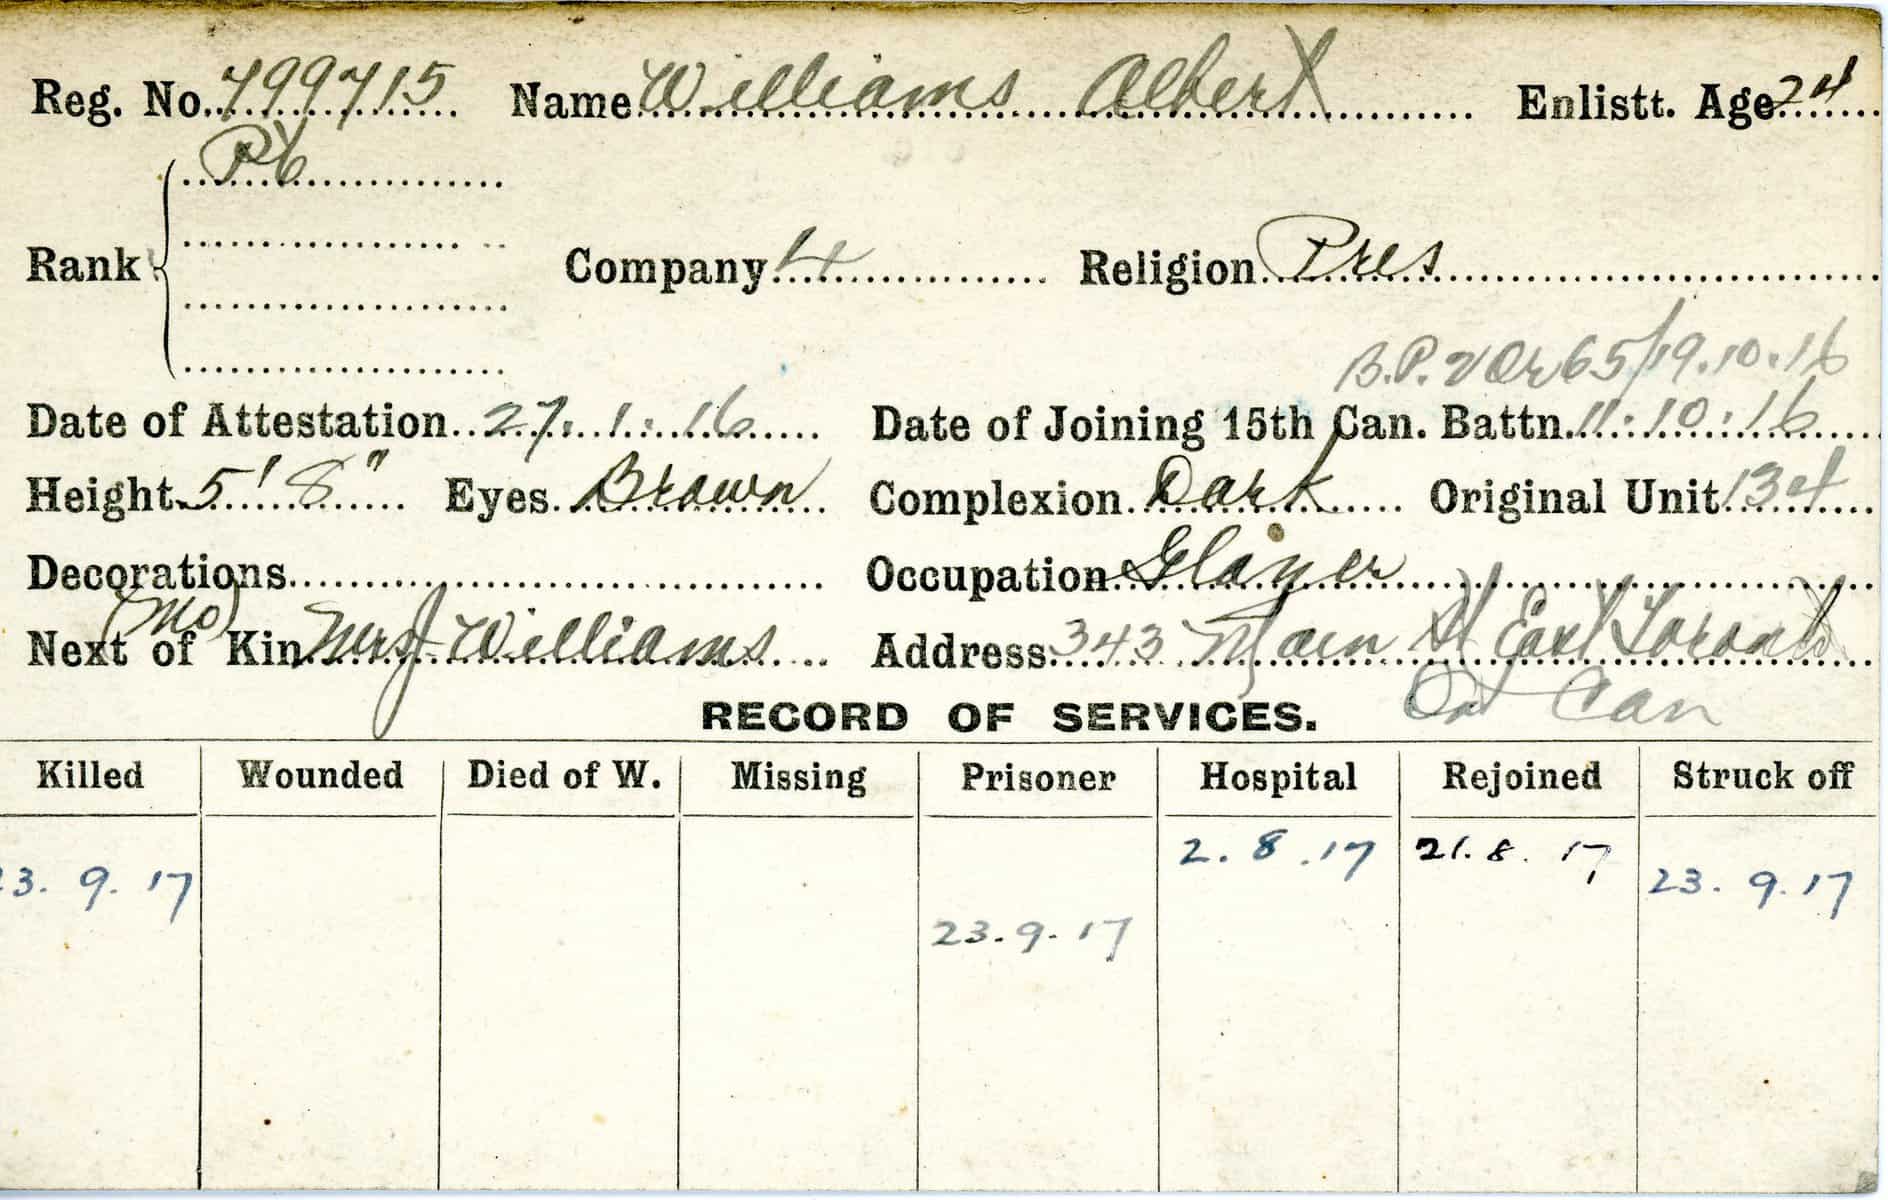 Reg. No. 799715 Name Williams Albert Enlistt. Age 24
Pte
Rank Company 4 Religion Pres
B.P. 65/19.10.16
Date of Attestation 27.1.16 Date of Joining 15th Can. Battn. 11.10.16
Height 5' 8" Eyes Brown Complexion Dark Original Unit 134
Decorations Occupation
(Mo)
Next of Kin Mrs J Williams Address 343 Main St East Toronto
Ont Can
RECORD OF SERVICES.
Killed Wounded Died of W. Missing Prisoner Hospital Rejoined Struck off
2.8.17 21.8.17
23.9.17 23.9.17
23.9.17